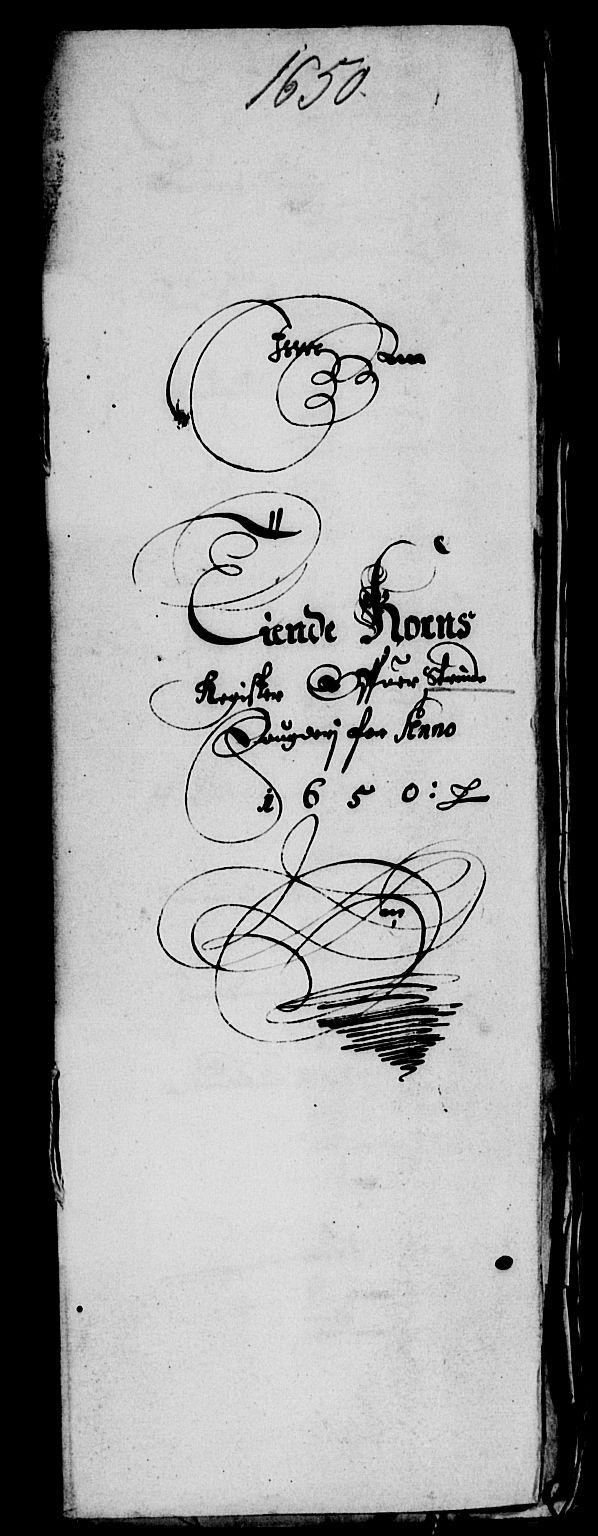 1650.
Tiende Korns
Register Offuer Strinde
Fougderj for Anno
1650: